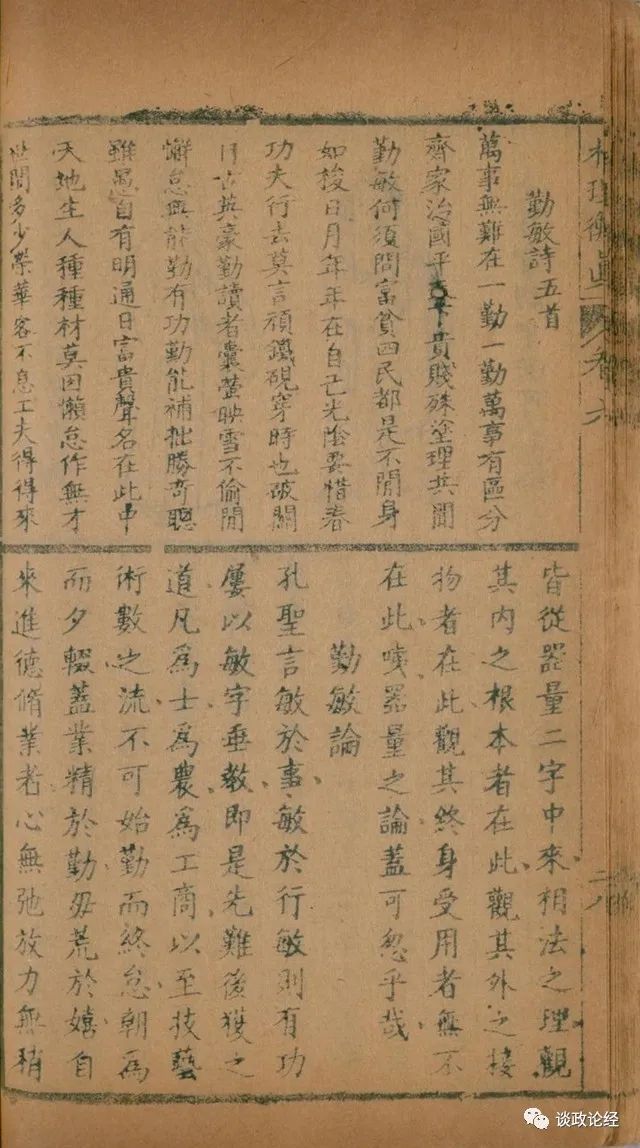 相理衡真 卷六
二八
勤敏詩五首
萬事無難在一勤一勤萬事有區分
齊家治國平天下貴賤殊塗理共聞
勤敏何須問富貧四民都是不閒身
如梭日月年年在自己光陰要惜春
功夫行去莫言頑鐵硯穿時也破關
自古英豪勤讀者囊螢映雪不偷閒
懈怠無能勤有功勤能補拙勝奇聰
雖愚自有明通日富貴聲名在此中
天地生人種種材莫因懶怠作無才
世間多少榮華客不息工夫得得來
皆從器量二字中來相法之理觀
其內之根本者在此觀其外之接
物者在此觀其終身受用者無不
在此咦器量之論蓋可忽乎哉
勤敏論
孔聖言敏於事敏於行敏則有功
屢以敏字垂教即是先難後獲之
道凡爲士爲農爲工商以至技藝
術數之流不可始勤而終怠朝爲
而夕輟蓋業精於勤毋荒於嬉自
來進德脩業者心無弛放力無稍
谈政论经